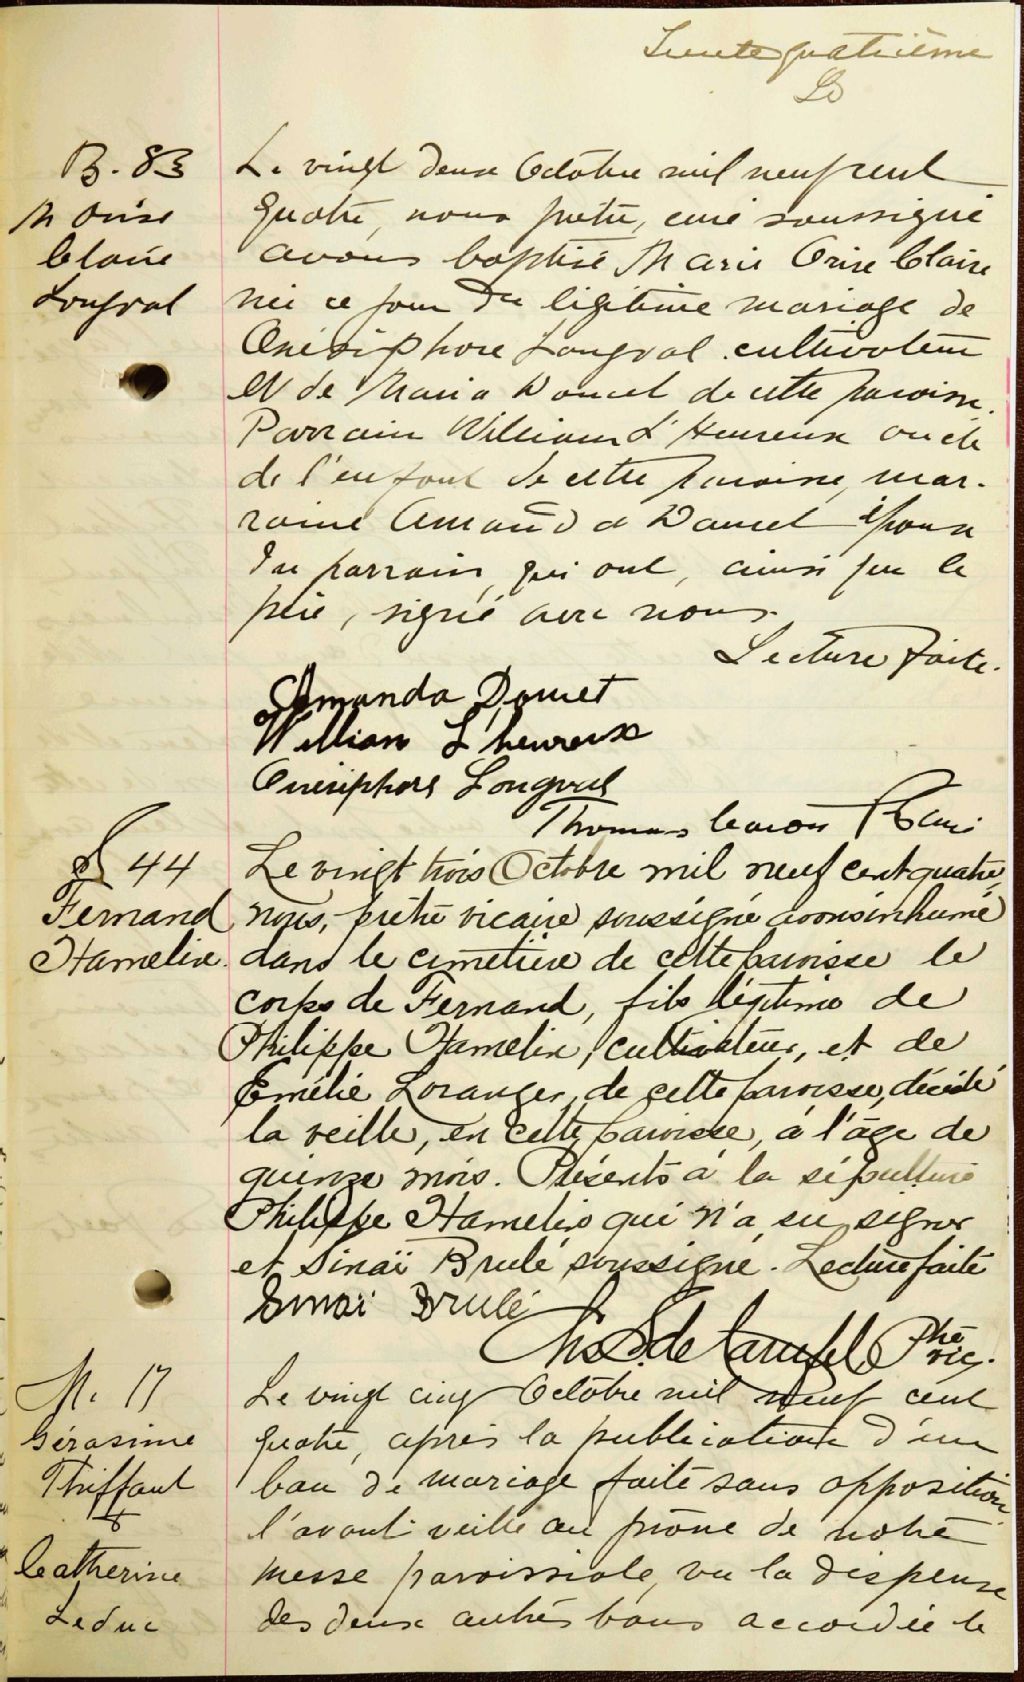 Trente quatrième
B. 83
M Orise
Claire
Longval
Le vingt deux Octobre mil neuf cent
quatre, nous prêtre, curé soussigné
avons baptisé Marie Orise Claire
née ce jour du légitime mariage de
Onésiphore Longval cultivateur
et de Maria Doucet de cette paroisse.
Parrain William L'Heureux oncle
de l'enfant de cette paroisse, mar-
raine Amanda Doucet épouse
du parrain, qui ont, ainsi que le
père, signé avec nous.
Lecture faite.
Amanda Doucet
William L'heureux
Onésiphore Longval
Thomas Caron Ptre Curé
S 44
Fernand
Hamelin
Le vingt trois Octobre mil neuf cent quatre,
nous, prêtre vicaire soussigné avons inhumé
dans le cimetière de cette paroisse le
corps de Fernand, fils légitime de
Philippe Hamelin, cultivateur, et de
Emélie Loranger, de cette paroisse, décédé
la veille, en cette paroisse, à l'âge de
quinze mois. Présents à la sépulture
Philippe Hamelin qui n'a su signer
et Sinaï Brulé soussigné. Lecture faite
Sinaï Brulé
Chs. S. de Carufel, Ptre
vic.
M. 17
Gérasime
Thiffaut
&
Catherine
Leduc
Le vingt cinq Octobre mil neuf cent
quatre, après la publication d'un
ban de mariage faite sans opposition
l'avant veille au prône de notre
messe paroissiale, vu la dispense
des deux autres bans accordée le